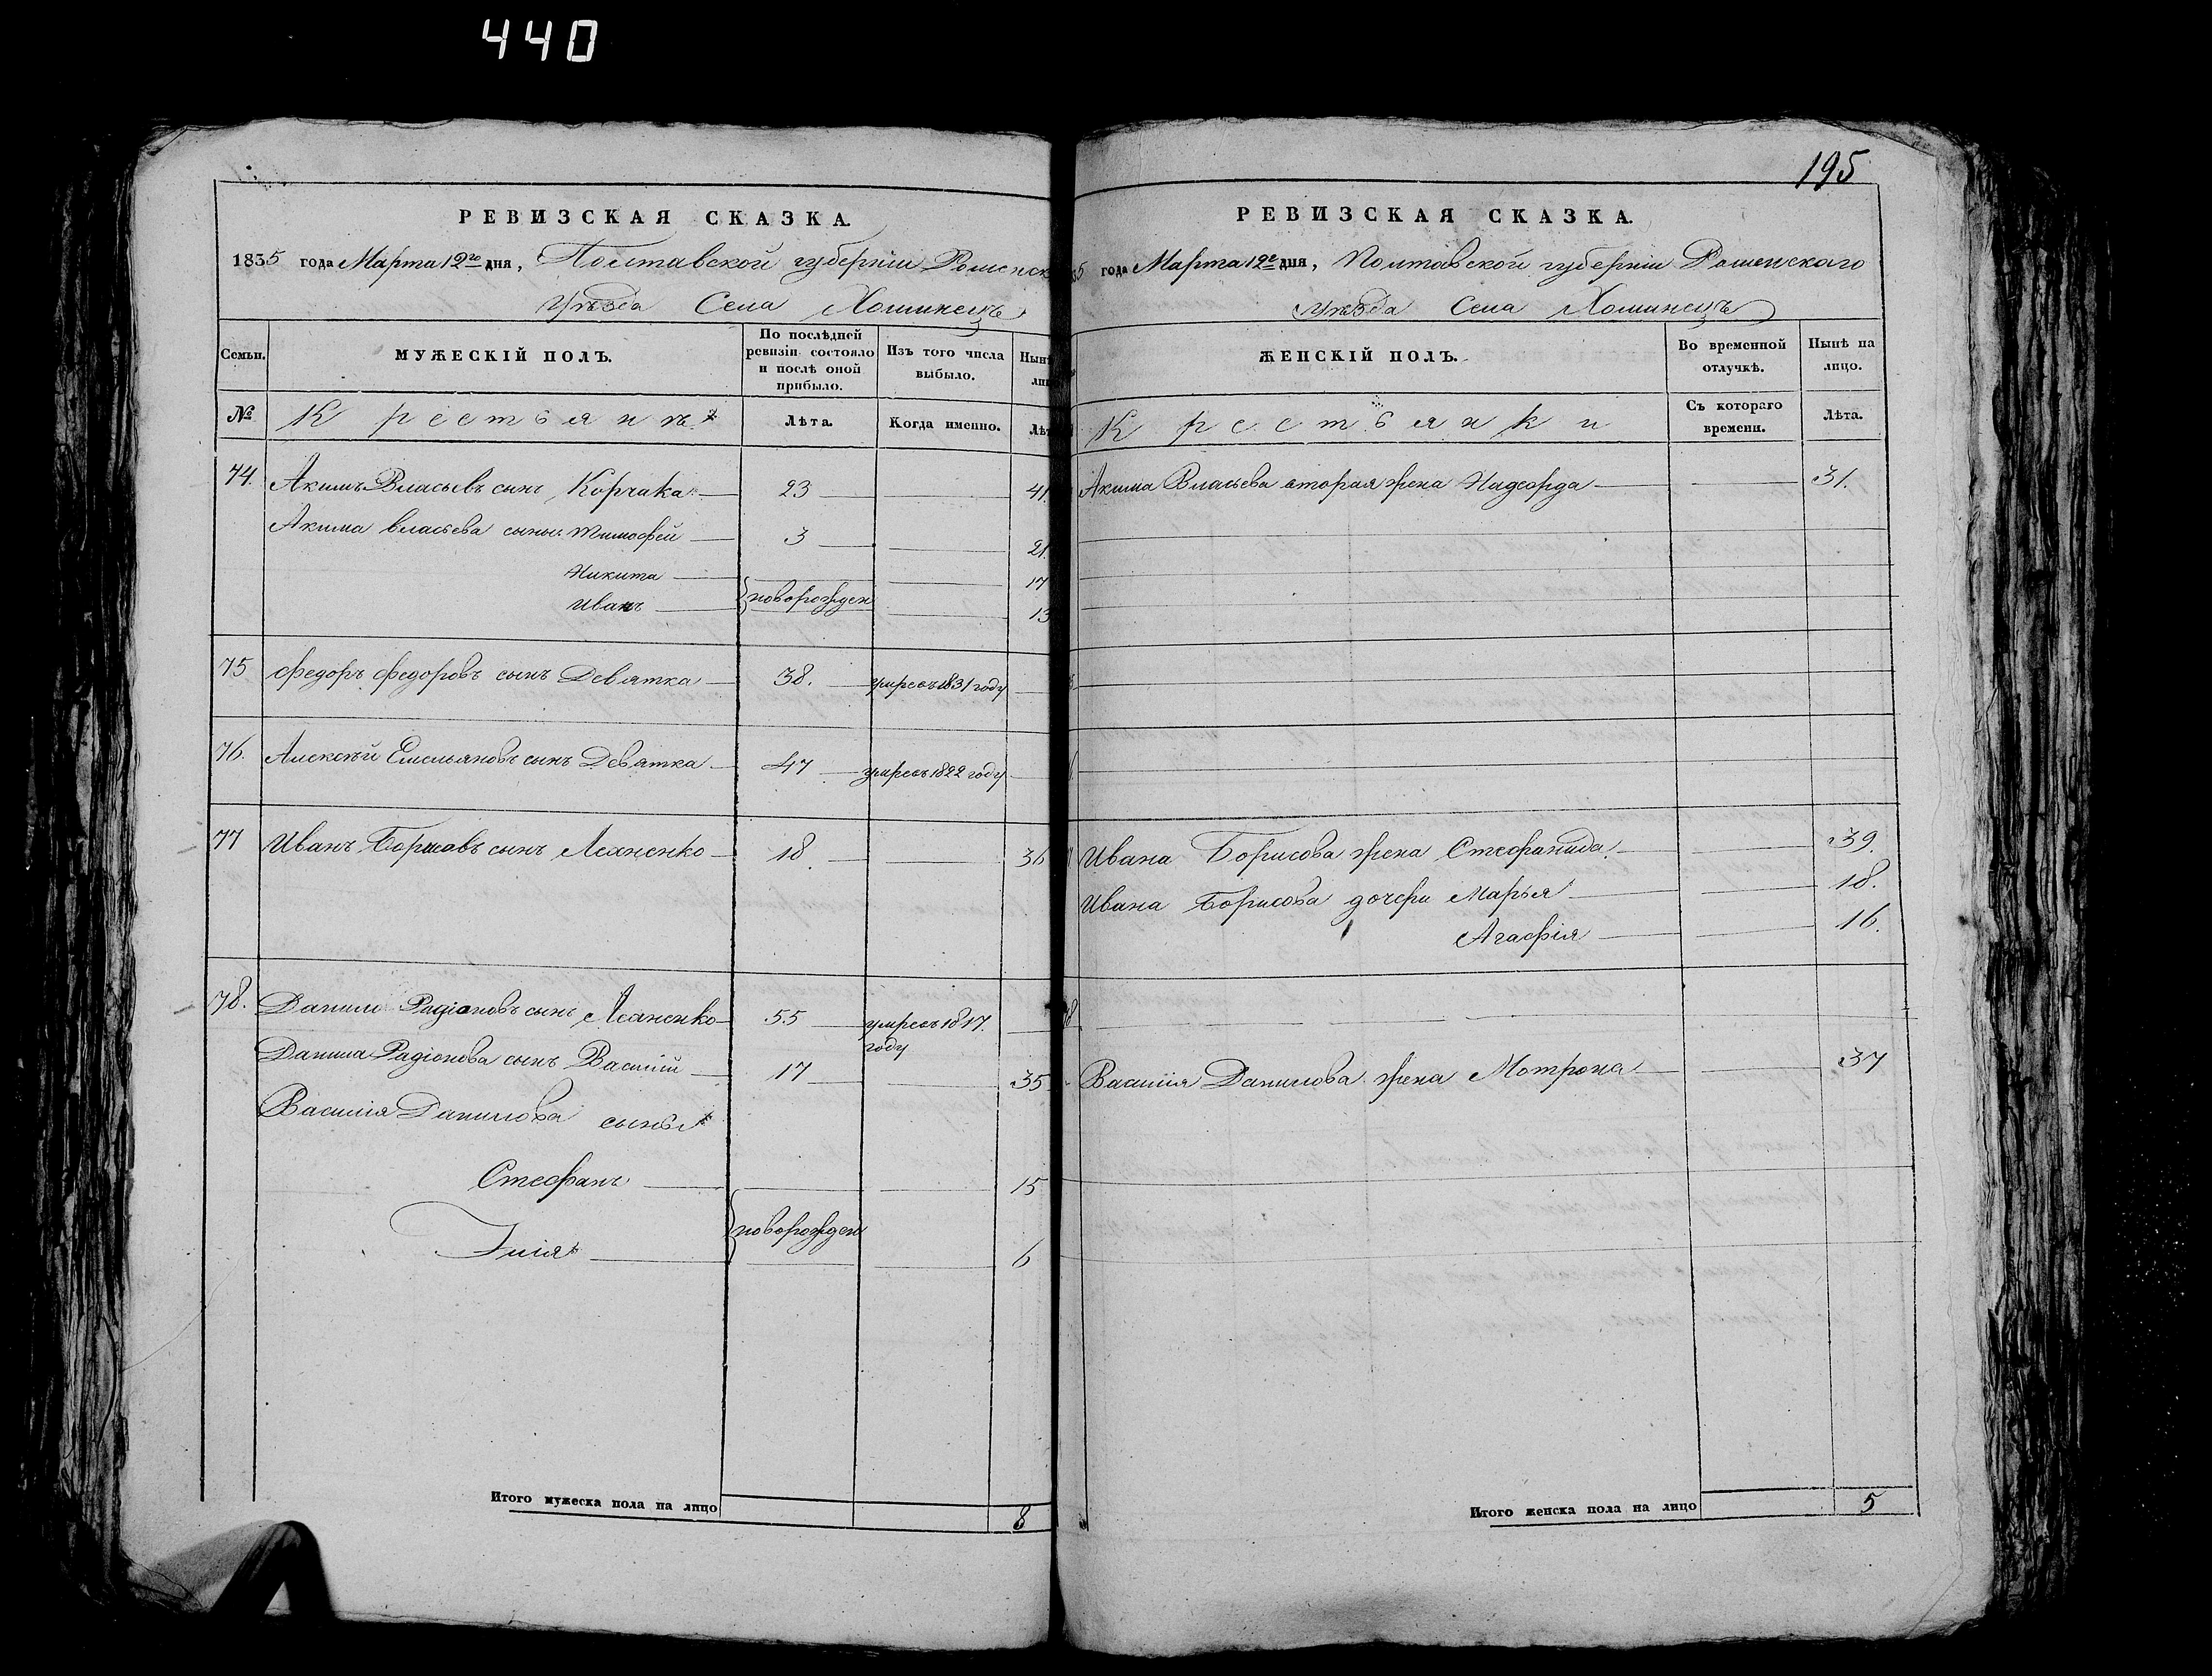 440
195
РЕВИЗСКАЯ СКАЗКА.
1835 года Марта 12го дня, Полтавской губерніи Роменск
Уѣзда Села Хоминецъ
Семьи.
МУЖЕСКІЙ ПОЛЪ.
По послѣдней ревизіи состояло и послѣ оной прибыло.
Изъ того числа выбыло.
Нын
ли
№
Крестьянъ
Лѣта.
Когда именно.
Лѣт
74. Акимъ Власьевъ сынъ Корчака 23 41.
Акима Власьева сыны Тимофей 3 21.
Никита 17
новорожден
Иванъ 13
75 Федоръ Федоровъ сынъ Девятка 38. умресъ 1831 году
76. Алексѣй Емельяновъ сынъ Девятка 47 умресъ 1822 году
77 Иванъ Борисовъ сынъ Лехненко 18 36
78. Данило Радіоновъ сынъ Лехненко 55 умресъ 1817.
году
Данила Радіонова сынъ Василій 17 35
Василія Данилова сыны
Стефанъ 15
новорожден
Ілія 6
Итого мужеска пола на лицо 8
РЕВИЗСКАЯ СКАЗКА.
35 года Марта 12го дня, Полтавской губерніи Роменскаго
Уѣзда Села Хоминецъ
ЖЕНСКІЙ ПОЛЪ.
Во временной отлучкѣ.
Нынѣ на лицо.
Крестьянки
Съ котораго времени.
Лѣта.
Акима Власьева вторая жена Хидорда 31.
Ивана Борисова жена Стефанида 39.
Ивана Борисова дочери Марья 18.
Агафія 16.
Василія Данилова жена Мотрона 37
Итого женска пола на лицо 5